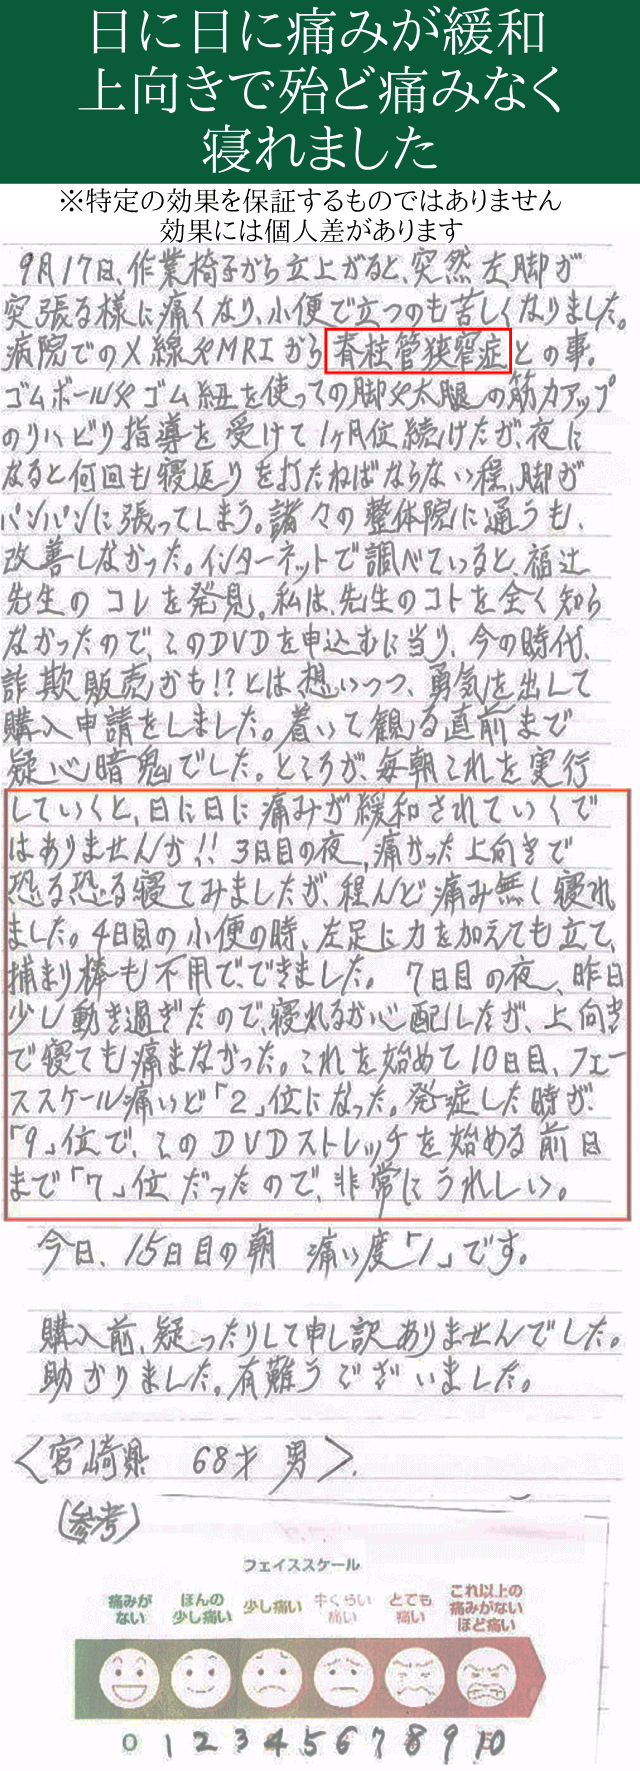 日に日に痛みが緩和
上向きで殆ど痛みなく
寝れました
※特定の効果を保証するものではありません
効果には個人差があります
9月17日、作業椅子から立上がると、突然左脚が
突張る様に痛くなり、小便で立つのも苦しくなりました。
病院でのX線やMRIから脊柱管狭窄症との事。
ゴムボールやゴム紐を使っての脚や太腿の筋力アップ
のリハビリ指導を受けて1ヶ月位続けたが、夜に
なると何回も寝返りを打たねばならない程、脚が
パンパンに張ってしまう。諸々の整体院に通うも、
改善しなかった。インターネットで調べていると、福辻
先生のコレを発見。私は、先生のコトを全く知ら
なかったので、このDVDを申込むに当り、今の時代、
詐欺販売かも!?とは想いつつ、勇気を出して
購入申請をしました。着いて観る直前まで
疑心暗鬼でした。ところが、毎朝これを実行
していくと、日に日に痛みが緩和されていくで
はありませんか!! 3日目の夜、痛かった上向きで
恐る恐る寝てみましたが、程んど痛み無く寝れ
ました。4日目の小便の時、左足に力を加えても立て、
捕まり棒も不用で、できました。 7日目の夜、昨日
少し動き過ぎたので、寝れるか心配したが、上向き
で寝ても痛まなかった。これを始めて10日目、フェー
ススケール痛いど「2」位になった。発症した時が、
「9」位で、このDVDストレッチを始める前日
まで「7」位だったので、非常にうれしい。
今日、15日目の朝 痛い度「1」です。
購入前、疑ったりして申し訳ありませんでした。
助かりました。有難うございました。
<宮崎県 68才 男>.
(参考)
フェイススケール
痛みが
ない
ほんの
少し痛い
少し痛い
半くらい
痛い
とても
痛い
これ以上の
痛みがない
ほど痛い
0 1 2 3 4 5 6 7 8 9 10